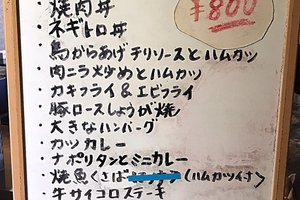 ・焼肉丼
・ネギトロ丼
¥800
・鳥からあげチリソースとハムカツ
・肉ニラ炒めとハムカツ
・カキフライ&エビフライ
・豚ロースしょうが焼
・大きなハンバーグ
・カツカレー
・ナポリタンとミニカレー
・焼魚くさば (ハムカツ付>
・牛サイコロステーキ